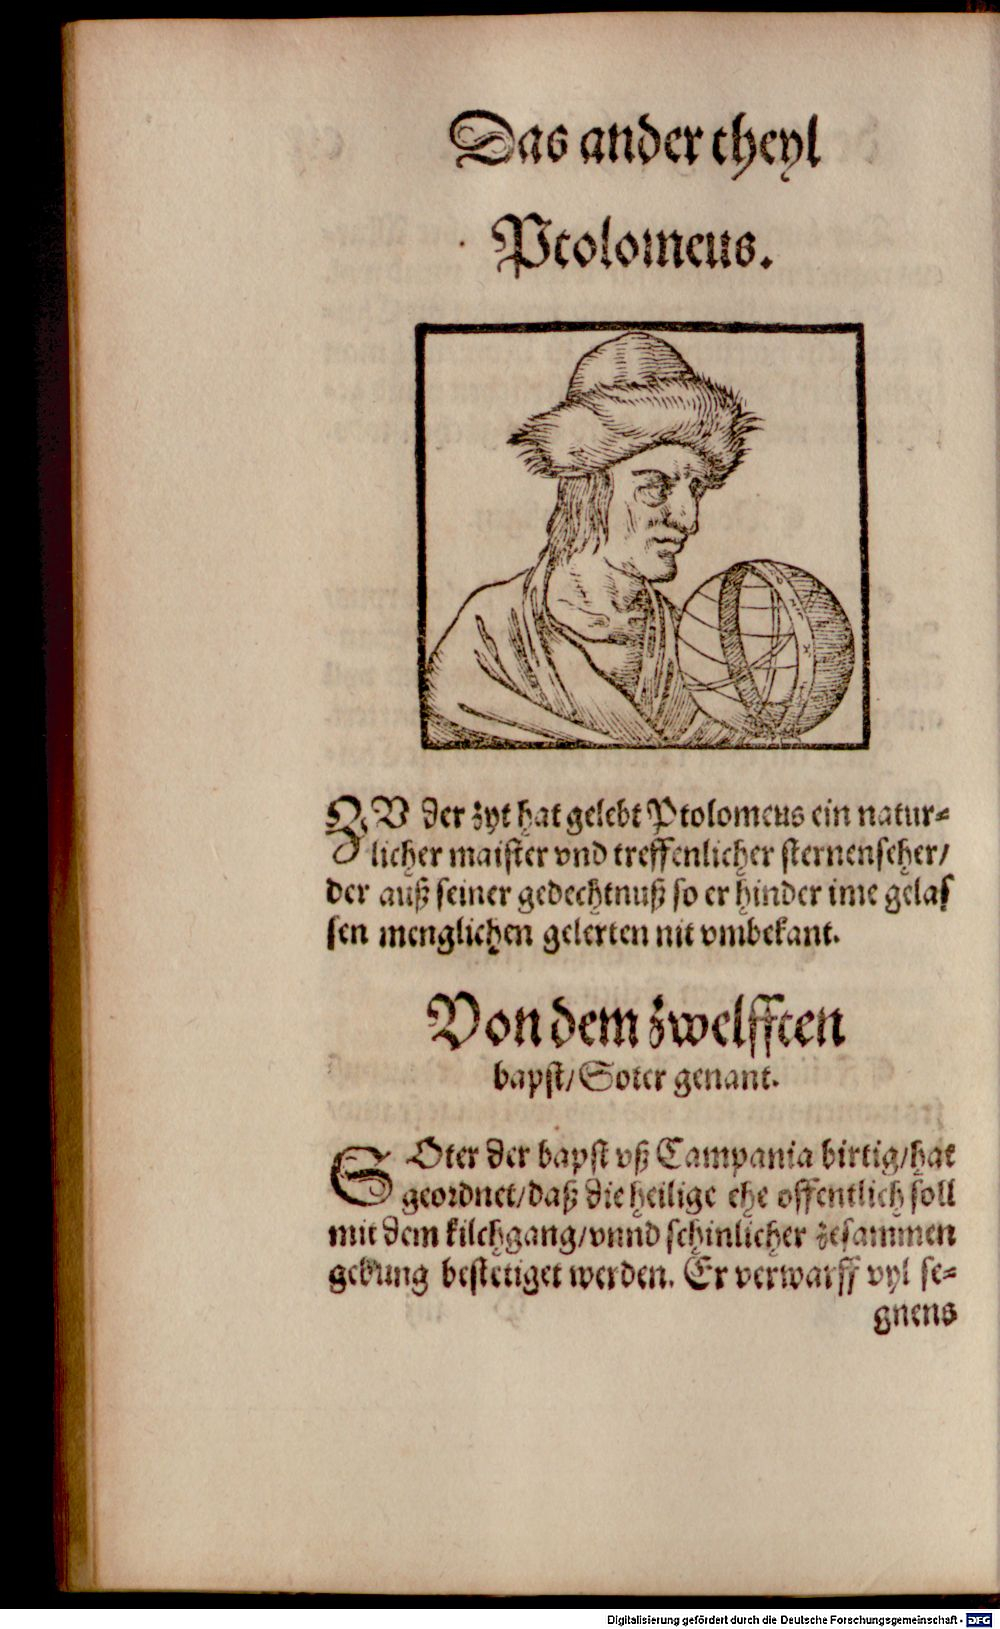 Das ander theyl
Ptolomeus.
ZV der zyt hat gelebt Ptolomeus ein natur=
licher maister vnd treffenlicher sternenseher/
der auß seiner gedechtnuß so er hinder ime gelas
sen menglichen gelerten nit vmbekant.
Von dem zwelfften
bapst/ Soter genant.
SOter der bapst vß Campania birtig/ hat
geordnet/ daß die heilige ehe offentlich soll
mit dem kilchgang/ vnnd schinlicher zesammen
gebung bestetiget werden. Er verwarff vyl se=
gnens
Digitalisierung gefördert durch die Deutsche Forschungsgemeinschaft - DFG